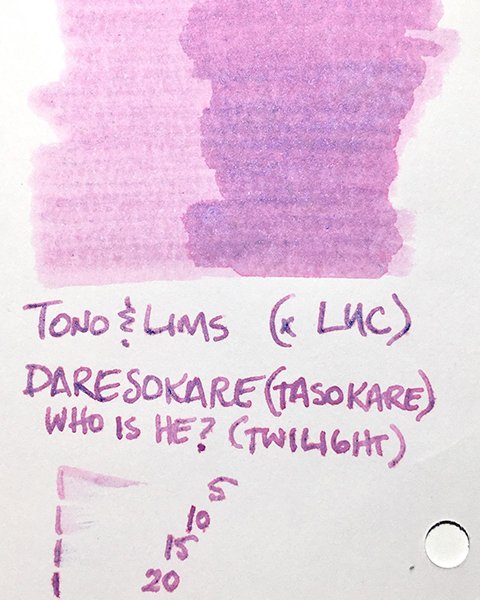 TONO & LIMS (x LUC)
DARESOKARE (TASOKARE)
WHO IS HE? (TWILIGHT)
5
10
15
20